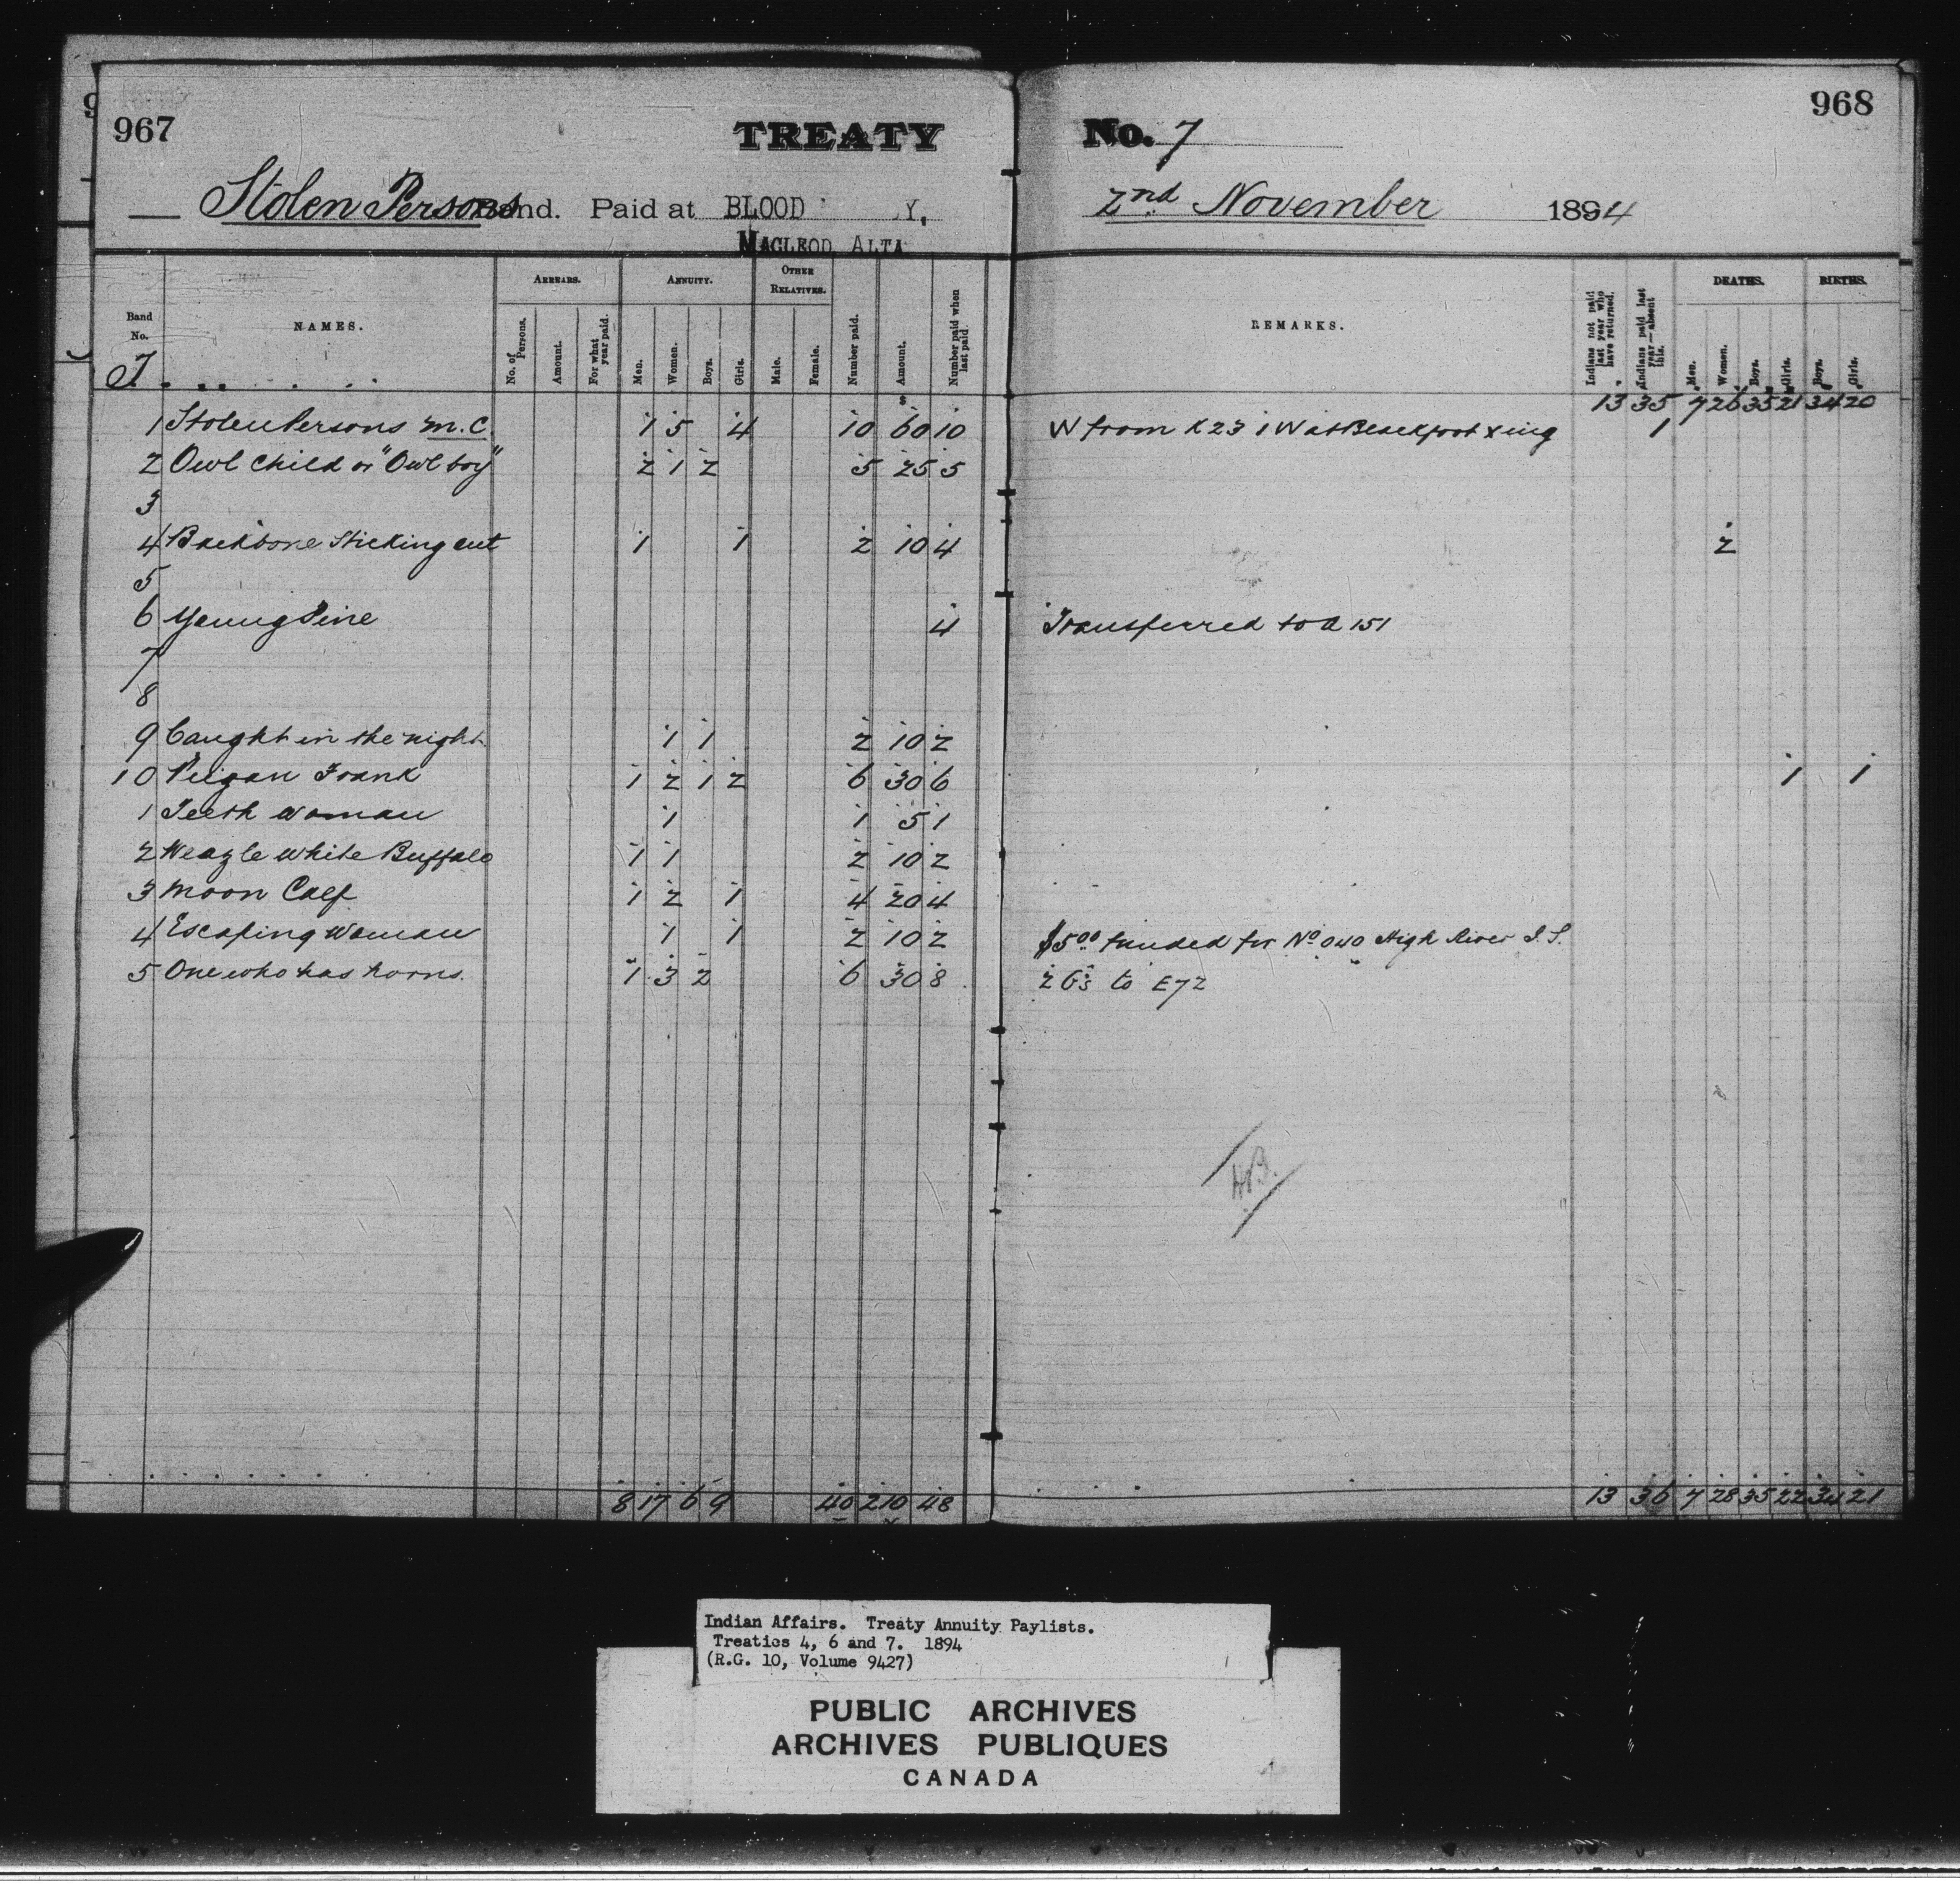 967
968
TREATY No. 7
Stolen Persons Band. Paid at BLOOD Y, 2nd November 1894
MACLEOD ALTA
Band No. NAMES. ARREARS. ANNUITY. OTHER RELATIVES. Number paid. Amount. Number paid when last paid. REMARKS. Indians not paid last year who have returned. Indians paid last year—absent this. DEATHS. BIRTHS.
No. of Persons. Amount. For what year paid. Men. Women. Boys. Girls. Male. Female. Men. Women. Boys. Girls. Boys. Girls.
$
13 35 7 26 35 21 34 20
1 Stolen Persons M.C. 1 5 4 10 60 10 W from K23 1 W at Blackfoot Xing 1
2 Owl Child or "Owl boy" 2 1 2 5 25 5
3
4 Backbone Sticking out 1 1 2 10 4 2
5
6 Young Pine 4 Transferred to A 151
7
8
9 Caught in the night 1 1 2 10 2
10 Peigan Frank 1 2 1 2 6 30 6 1 1
1 Teeth woman 1 1 5 1
2 Weazle white Buffalo 1 1 2 10 2
3 Moon Calf 1 2 1 4 20 4
4 Escaping Woman 1 1 2 10 2 $5.00 funded for No 040 High River I.S.
5 One who has horns. 1 3 2 6 30 8 2 G's to E72
8 17 6 9 40 210 48 13 36 7 28 35 22 34 21
Indian Affairs. Treaty Annuity Paylists.
Treaties 4, 6 and 7. 1894
(R.G. 10, Volume 9427)
PUBLIC ARCHIVES
ARCHIVES PUBLIQUES
CANADA